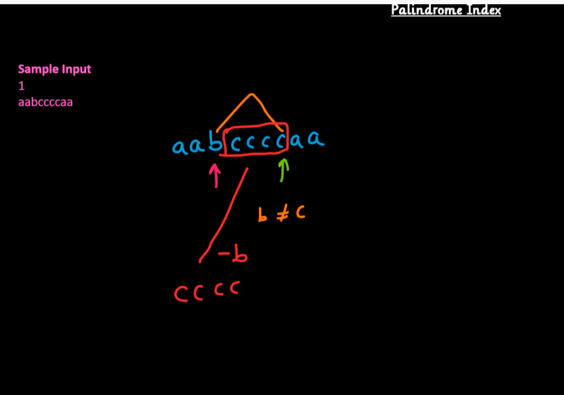 Palindrome Index
Sample Input
1
aabccccaa
aabccccaa
b ≠ c
-b
cccc